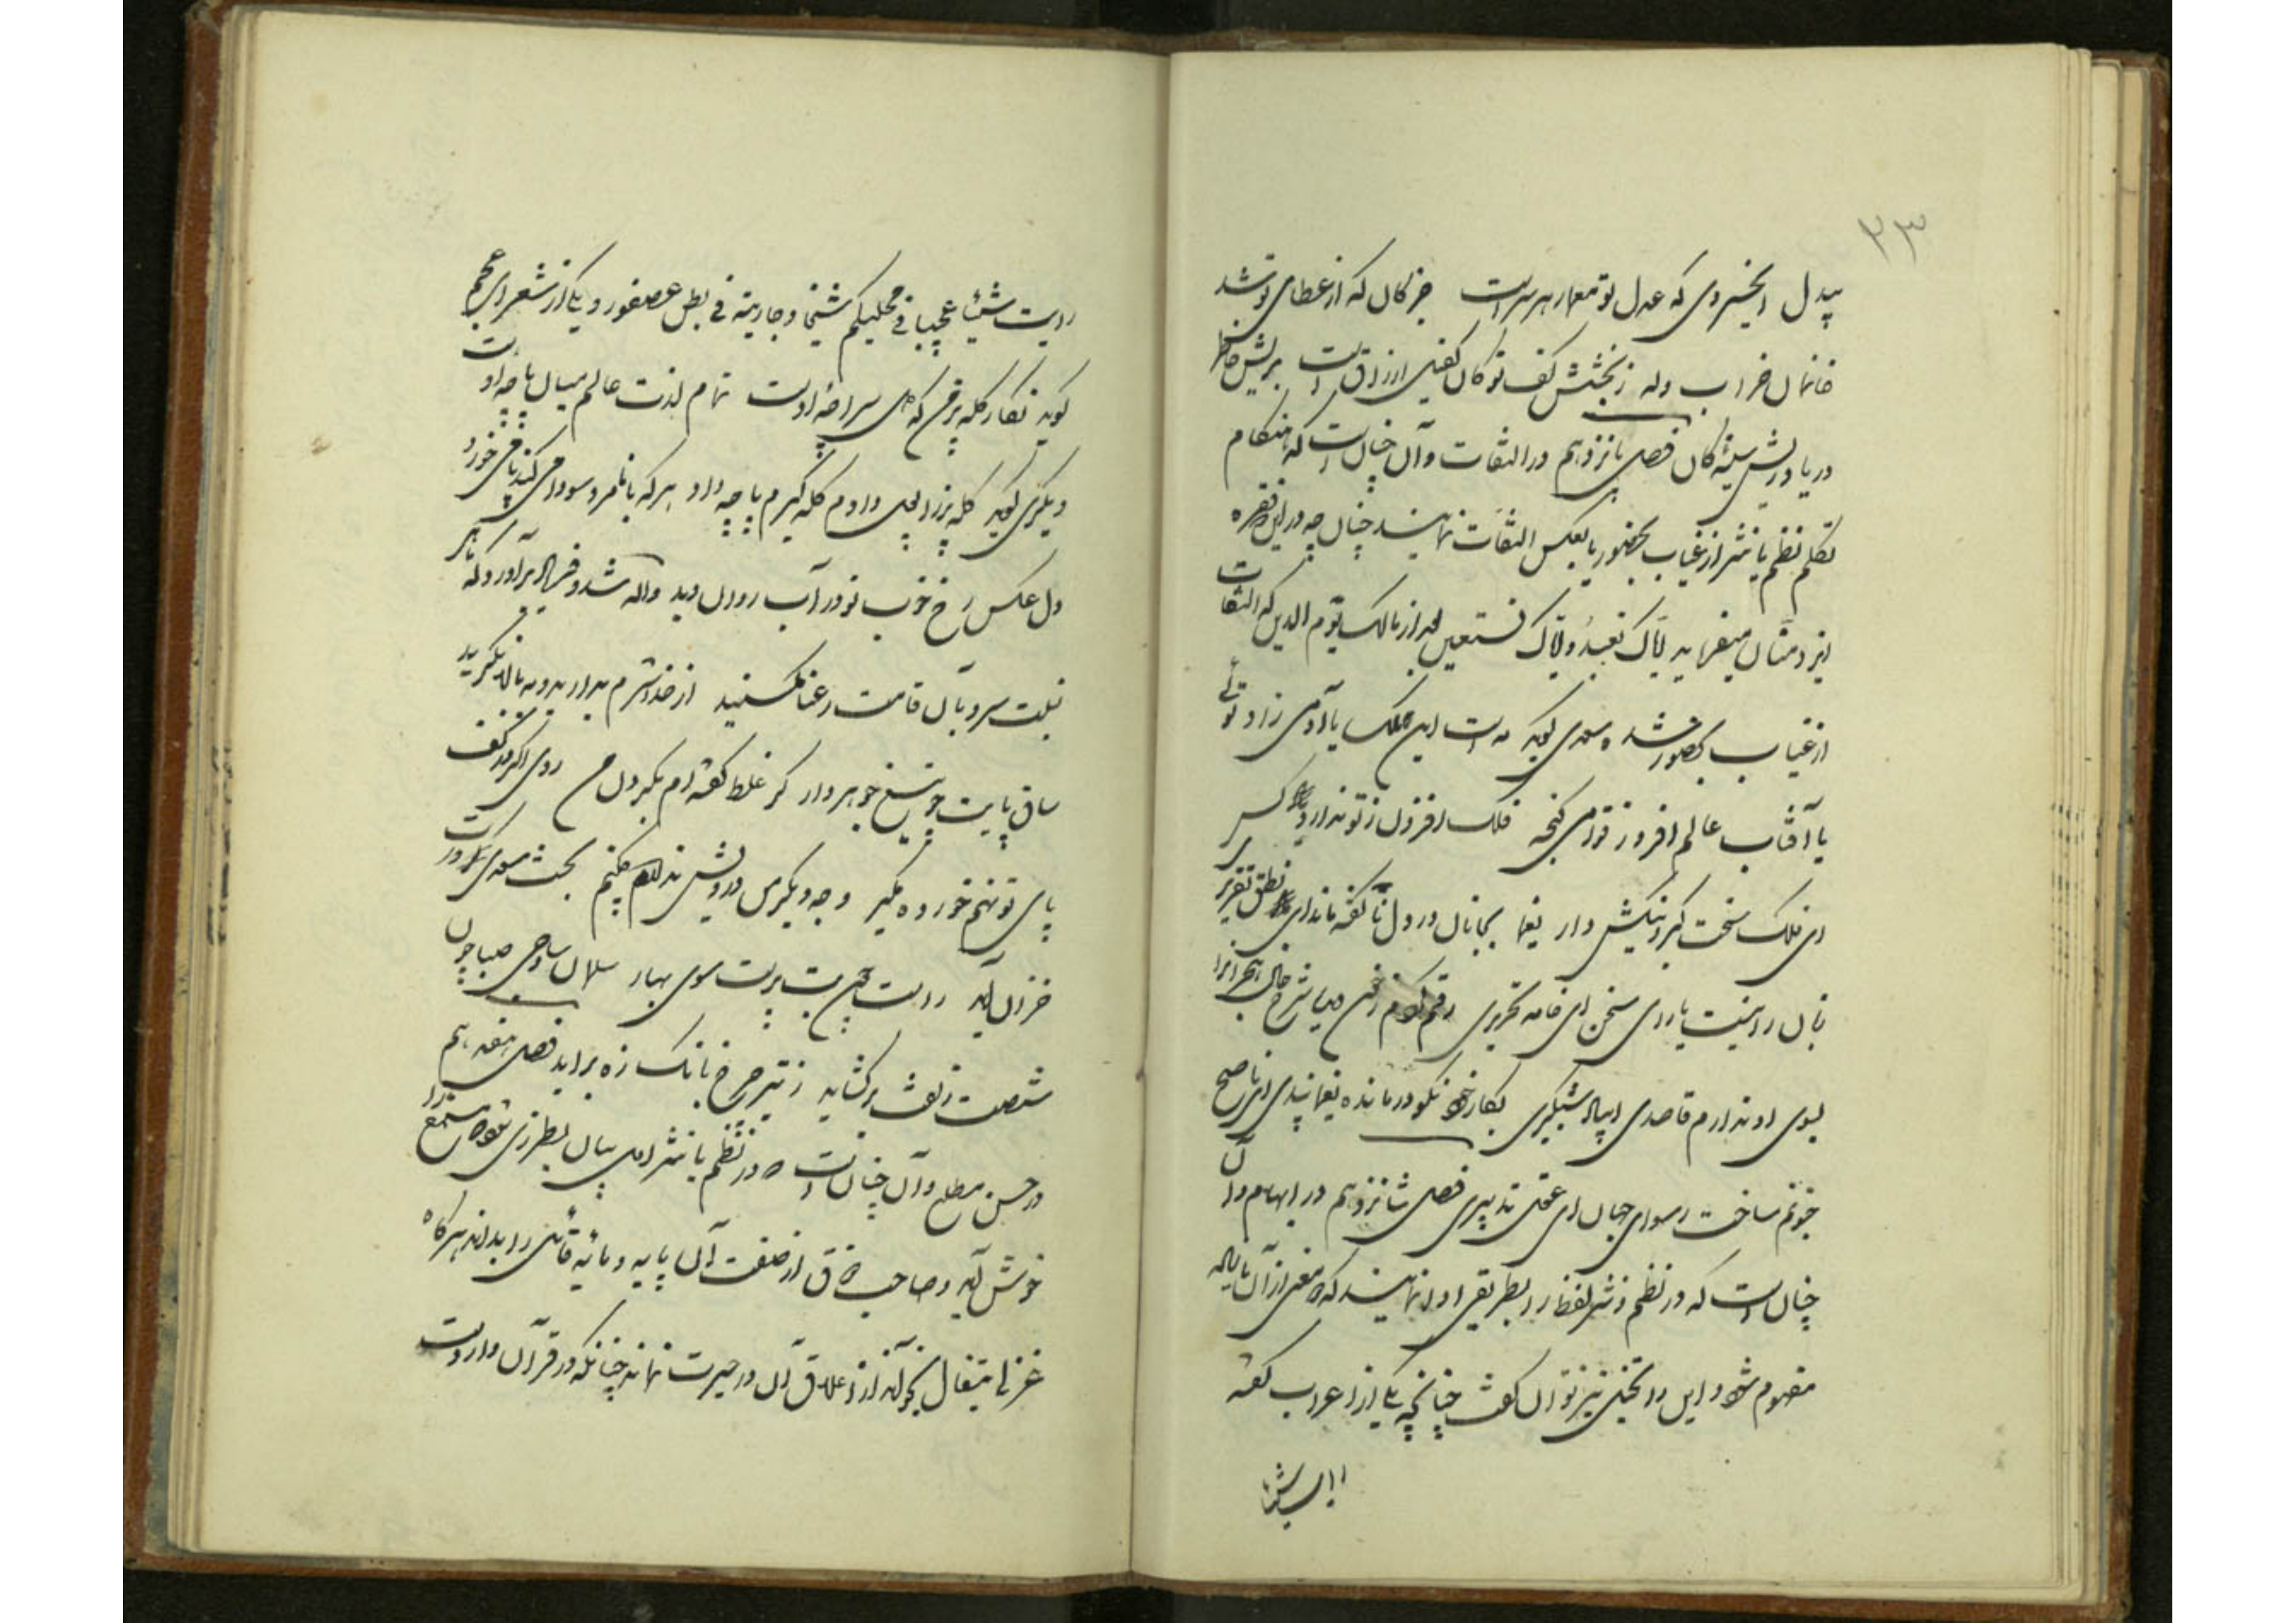 ۲۳
بیدل ایخسروی که عدل تو معمار هر سراست جز کان که از عطای تو شد
خانمان خراب وله ز بخشش کف تو کان کفیل ارزاق است بریش خانها
دریا دریش سینه کان فصل پانزدهم در التفات و آن چنان است که هنگام
تکلم نظم یا نثر از غیاب بحضور یا بعکس التفات نمایند چنان چه در این فقره
ایزد منان میفرماید ایاک نعبد و ایاک نستعین بعد از مالک یوم الدین که التفات
از غیاب بحضور شده سعدی گوید مه است این ملک یا آدمی زاد توئی
یا آفتاب عالم افروز فلک افزون ز تو ندارد کس
ای فلک سخت گیر و نیکش دار یغما بجانان درد دل ناگفته ماند ای نطق تقریری
زبان را نیست یارای سخن ای خامه تحریری شرح حال هجرانرا
بسوی او ندارم قاصدی ای ناله شبگیری بکار خود نکو درمانده یغما پندی ای ناصح
جنونم ساخت رسوای جهان ای عقل تدبیری فصل شانزدهم در ایهام و آن
چنان است که در نظم و نثر لفظ را بطریقی ادا نمایند که دو معنی از آن
مفهوم شود و این را تخییل نیز توان گفت چنانچه یکی از اعراب گفته
رایت شیئا
رایت شیئا عجیبا فی محلیکم شیخا و جاریة فی بطن عصفور و یکی از شعرای عجم
گوید نگار کله پز من که دل سراچه اوست تمام لذت عالم میان پاچه اوست
دیگری گوید کله پز را پول دادم کله گیرم پاچه داد هر که با نامرد سودا می کند پا می خورد
دل عکس رخ خوب تو در آب روان دید واله شد و فریاد برآورد که ماهی
نسبت سرو بآن قامت رعنا مکنید از خدا شرم بدارید و به بالا نگرید
ساق پایت چو تیغ جوهردار گر غلط گفته ام بگیر دل من روی اگر در کف
پای تو نهم خورده مگیر وجه دیگر من درویش ندارم چکنم بخت سعدی
خزان آید رو است بت پرست سوی بهار سلمان ساوجی صبا چون
شصت زلفش برگشاید ز تیر چرخ بانگ زه براید فصل هفدهم
در حسن مطلع و آن چنان است که در نظم یا نثر ادای بیان بطرزی شود که مستمع را
خوش آید و صاحب ذوق از صنعت آن پایه و مایه قائل را بداند هر گاه
غزلی بخواند از اغلاق آن در حیرت نماند چنانکه در قرآن وارد است